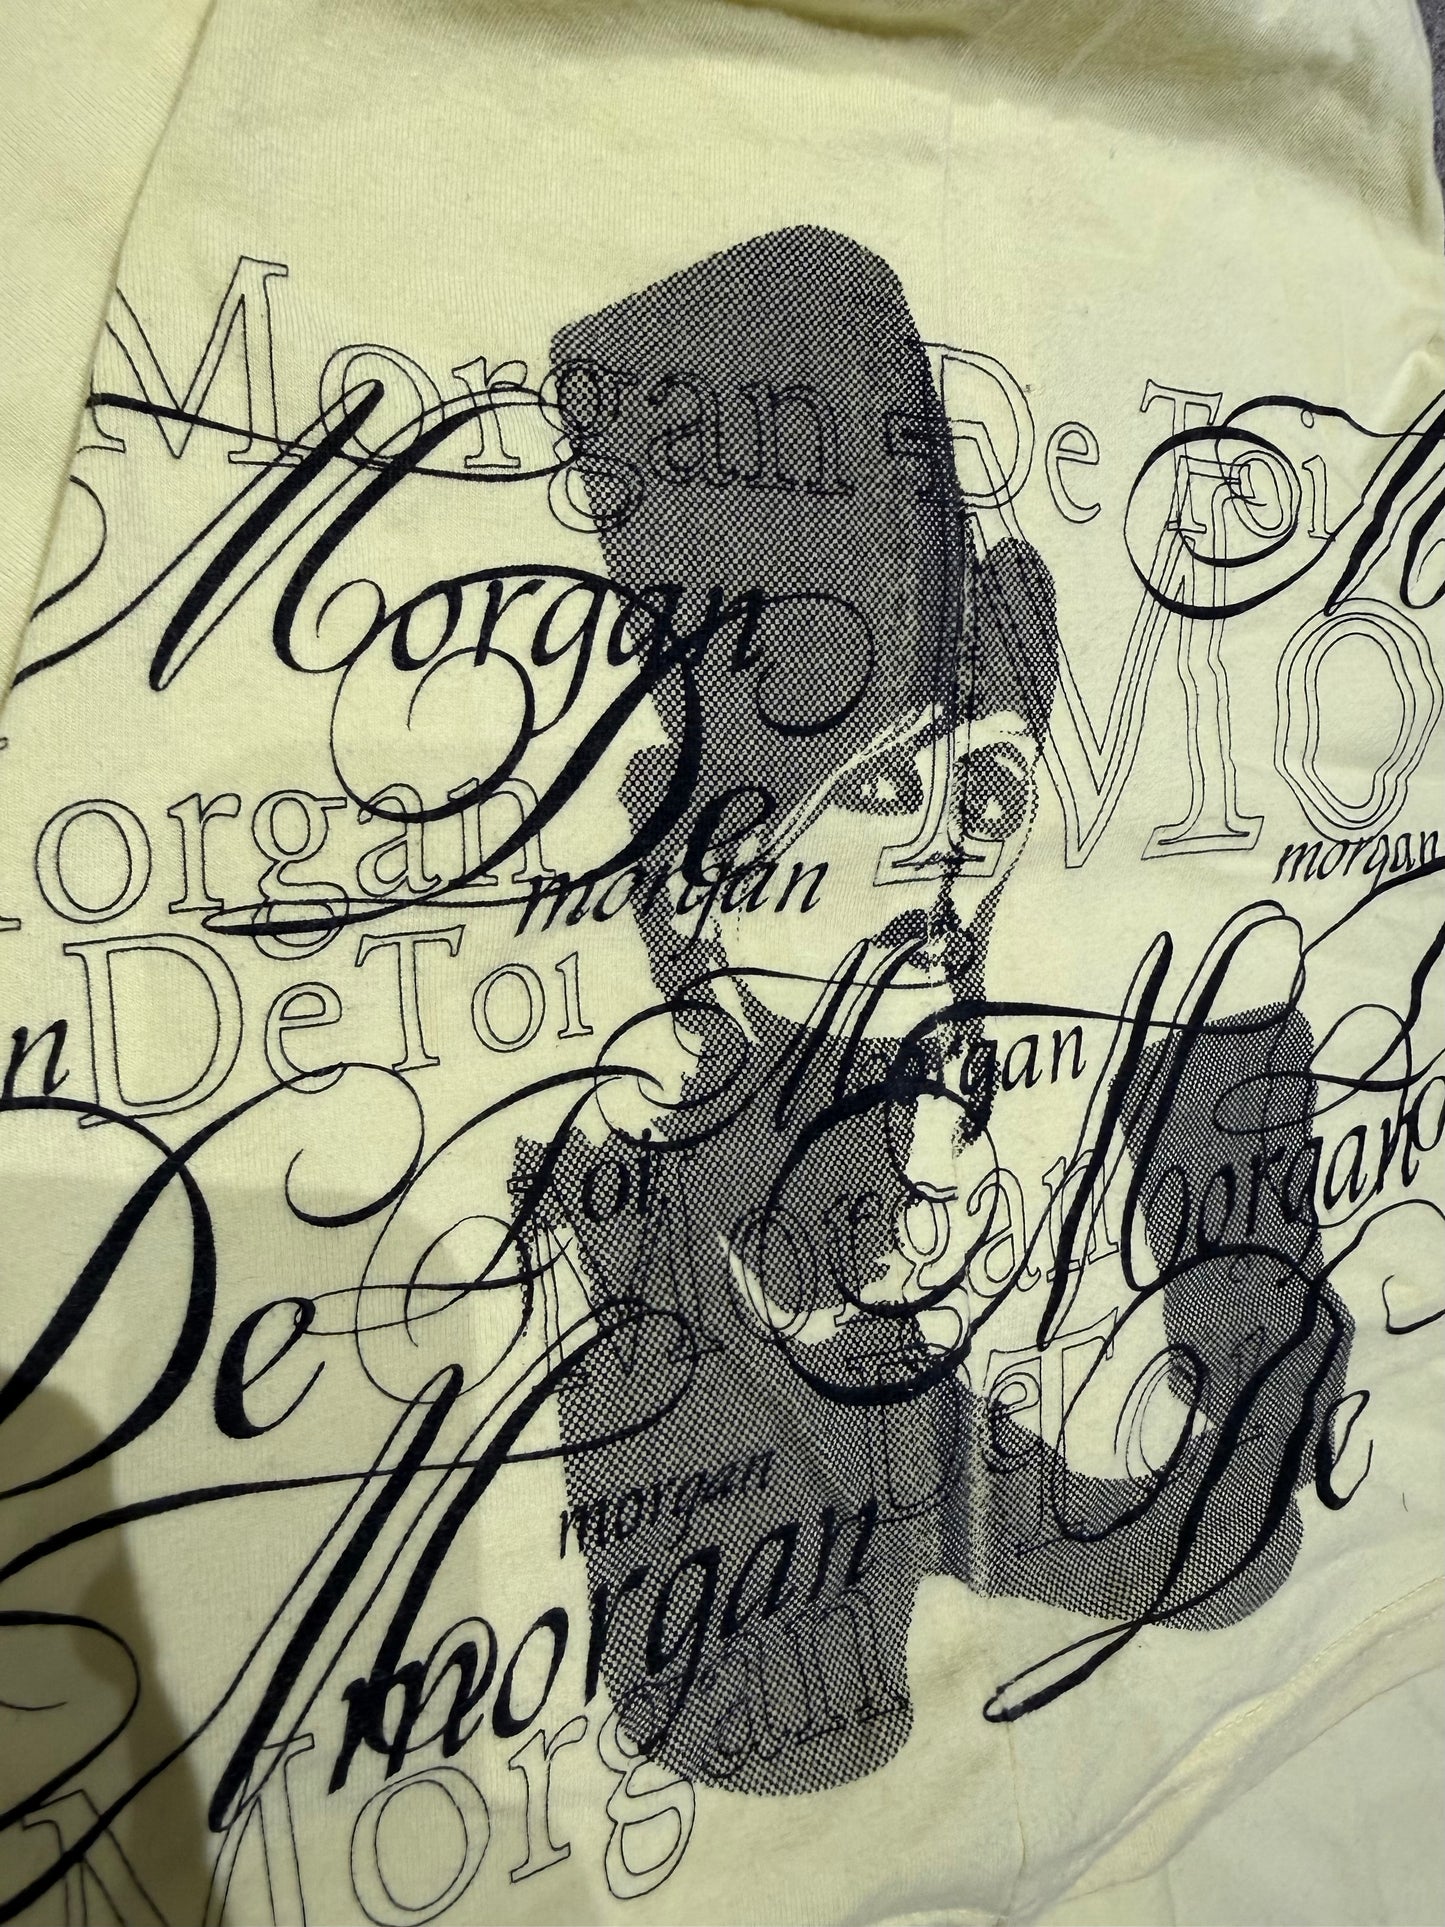 Morgan De Toi
Toi
Morgan
De
Mo
morgan
organ
DeToi
morgan
n
Morgan
Morgan
De
Toi
Morgan
DeToi
De
morgan
Morgan
Morgan